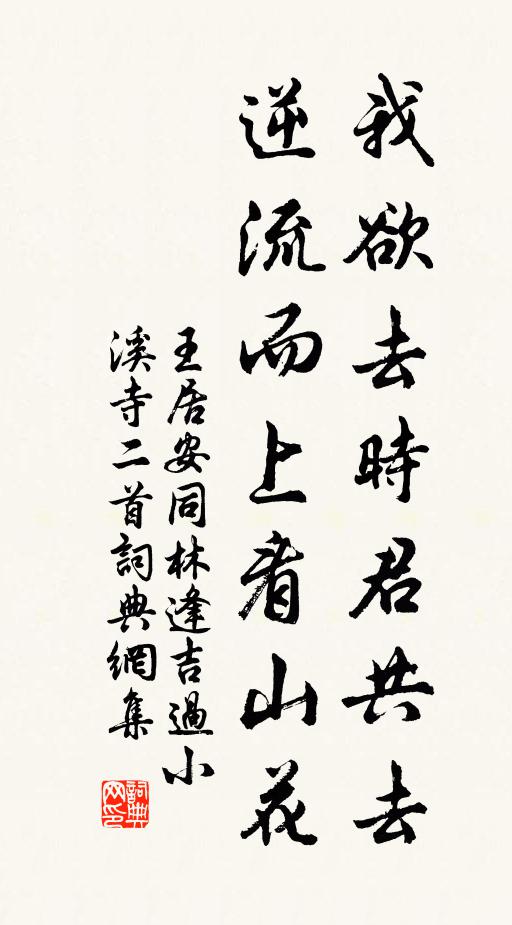 我欲去時君共去
逆流而上看山花
王居安同林逢吉過小
溪寺二首詞典網集
詞典
网印